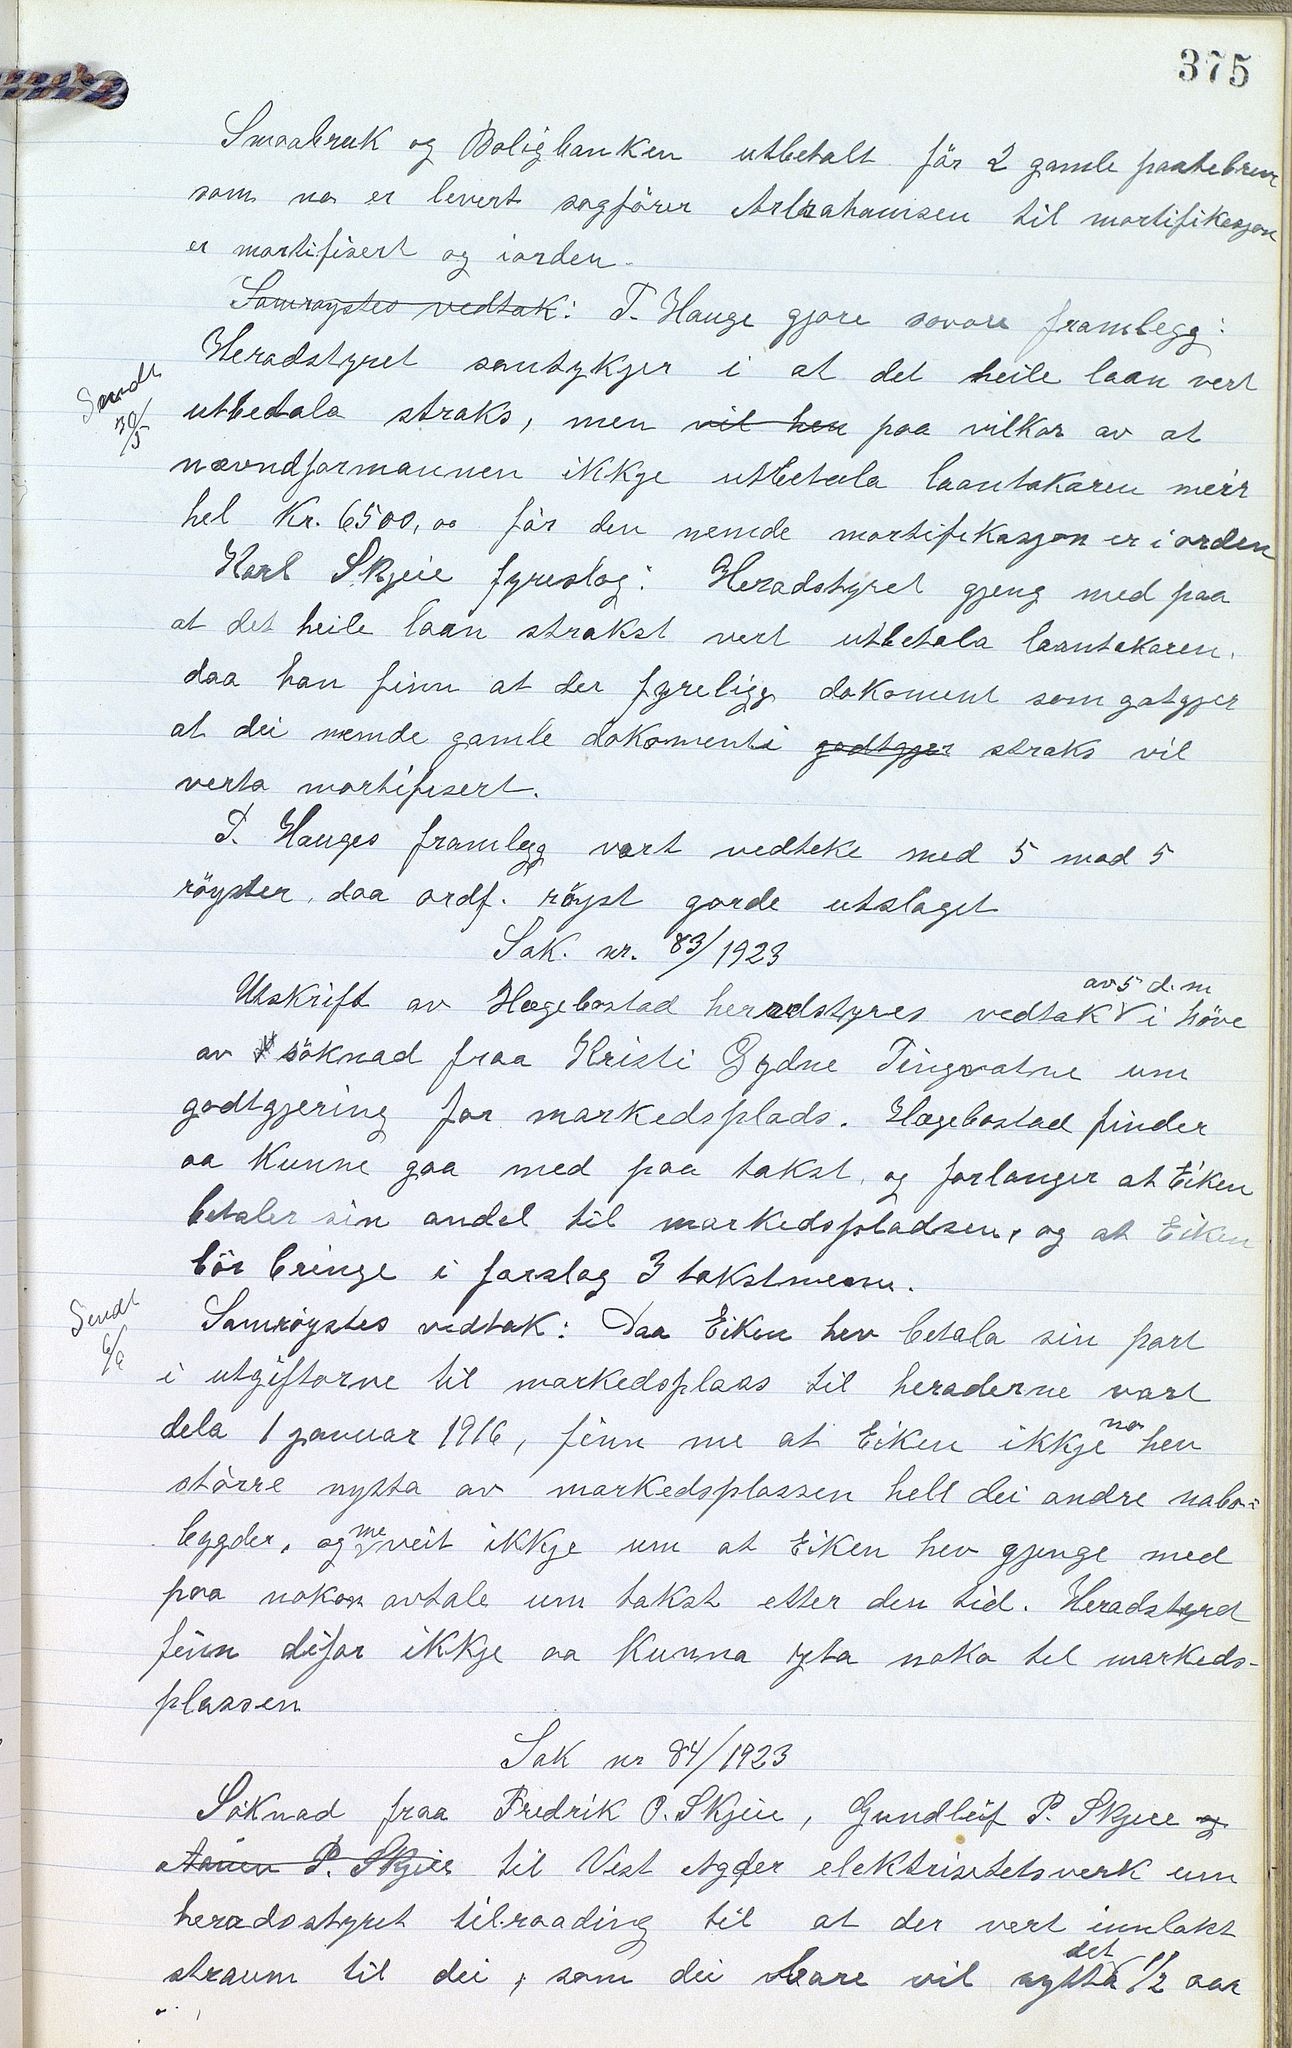 375
Smaabruk og Boligbanken utbetalt för 2 gamle pantebrev
som no er levert sagförer Abrahamsen til mortifikasjon
er mortifisert og iorden.
Samröystes vedtak: T. Hauge gjore sovore framlegg:
Heradstyret samtykjer i at det heile laan vert
Sendt 30/5
utbetala straks, men vil hev paa vilkor av at
nævndformannen ikkje utbetala laantakaren meir
hel Kr. 6500,00 för den nemde mortifikasjon er i orden
Karl Skjeie fyreslog: Heradstyret gjeng med paa
at det heile laan strakst vert utbetala laantakaren,
daa han finn at der fyreligg dokoment som gotgjer
at dei nemde gamle dokomenti godtgjer straks vil
verta mortifisert.
T. Hauges framlegg vart vedteke med 5 mod 5
röyster, daa ordf. röyst gorde utslaget
Sak. nr. 83/1923
Utskrift av Hægebostad heradstyres vedtak av 5 d.m i höve
av söknad fraa Kristi Gydne Tingvatne um
godtgjering for markedsplads. Hægebostad finder
aa kunne gaa med paa takst, og forlanger at Eiken
betaler sin andel til markedspladsen, og at Eiken
bör bringe i forslag 3 takstmenn.
Sendt 6/6
Samröystes vedtak: Daa Eiken hev betala sin part
i utgiftorne til markedsplass til heraderne vart
dela 1 januar 1916, finn me at Eiken ikkje no hev
större nytta av markedsplassen hell dei andre nabo-
bygder, og me veit ikkje um at Eiken hev gjenge med
paa nokon avtale um takst etter den tid. Heradstyret
finn difor ikkje aa kunna yta noko til markeds-
plassen
Sak nr 84/1923
Söknad fraa Fredrik O. Skjeie, Gundleif P. Skjeie og
Aanen P. Skjeie til Vest Agder elektrisitetsverk um
heradstyret tilraading til at der vert innlakt
straum til dei, som dei bare vil nytta det 1/2 aar